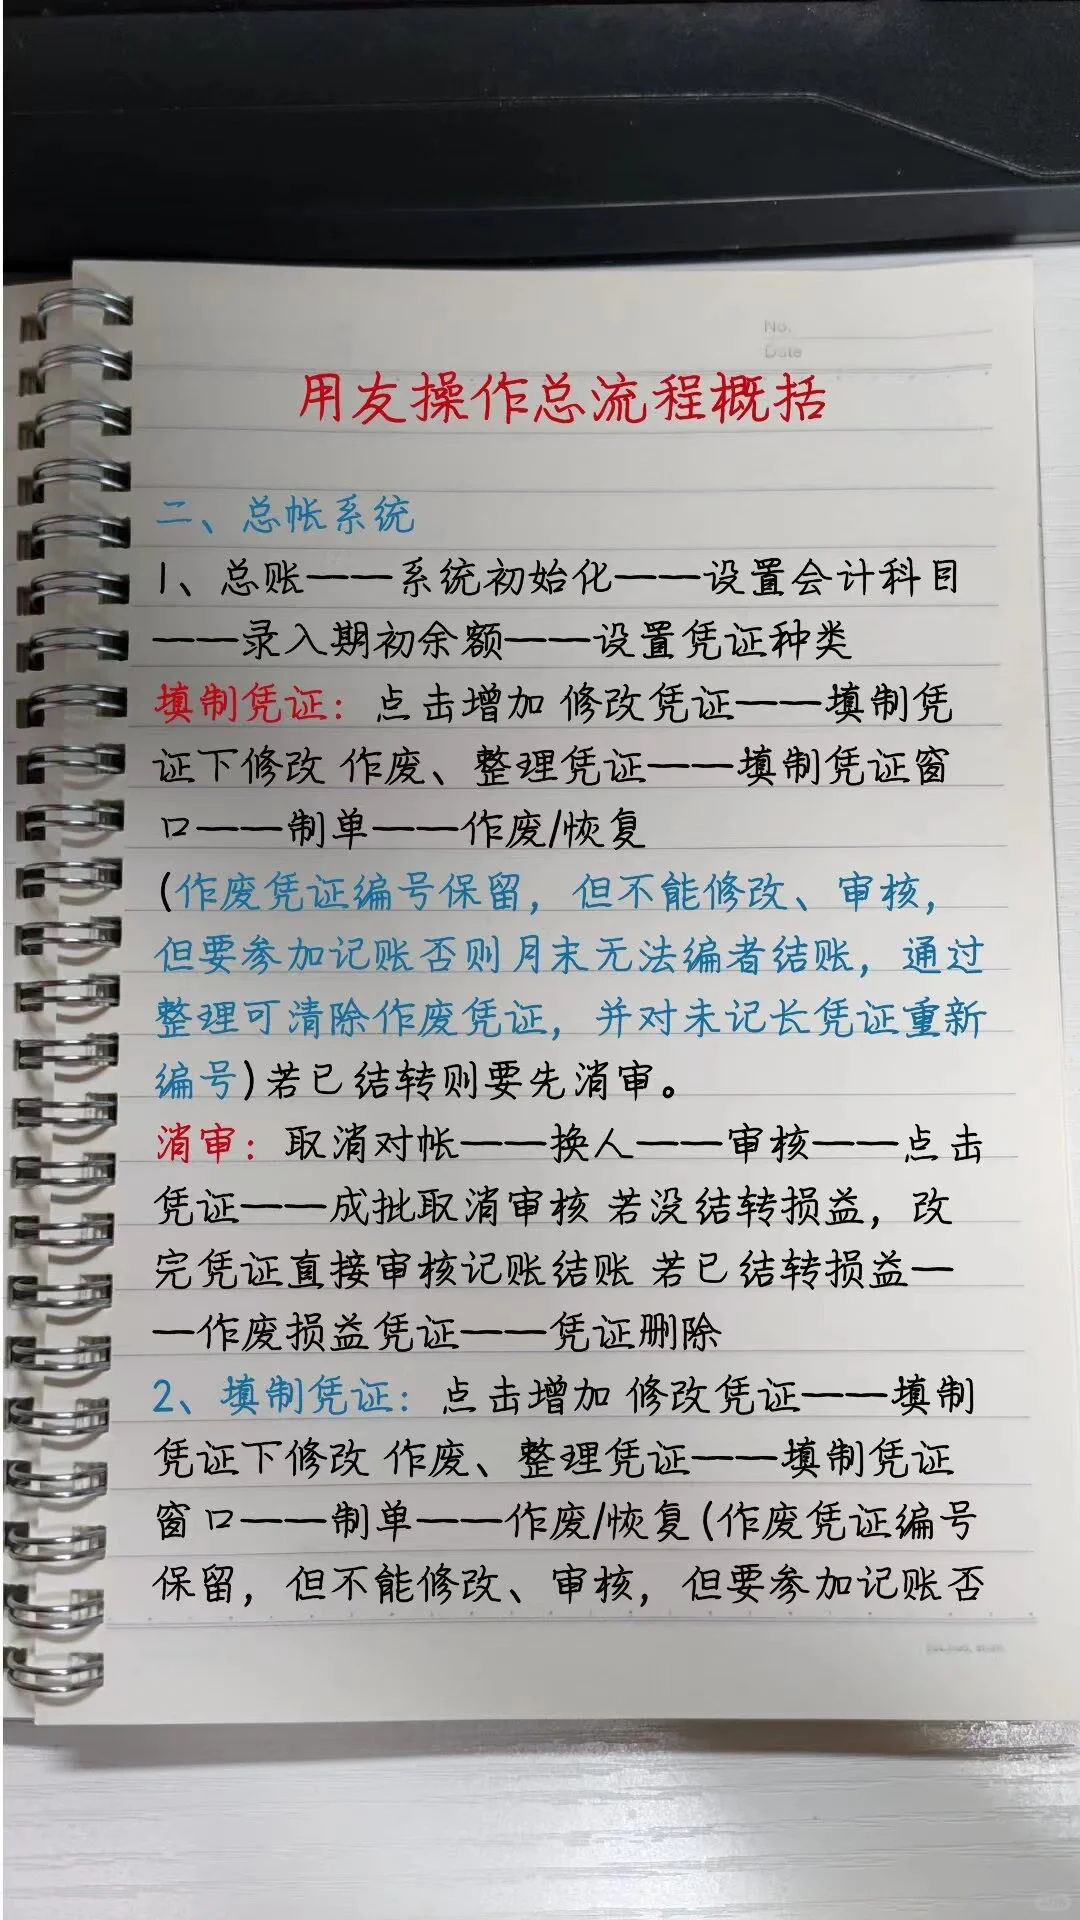 No.
Date
用友操作总流程概括
二、总帐系统
1、总账——系统初始化——设置会计科目
——录入期初余额——设置凭证种类
填制凭证：点击增加 修改凭证——填制凭
证下修改 作废、整理凭证——填制凭证窗
口——制单——作废/恢复
(作废凭证编号保留，但不能修改、审核，
但要参加记账否则月末无法编者结账，通过
整理可清除作废凭证，并对未记长凭证重新
编号)若已结转则要先消审。
消审：取消对帐——换人——审核——点击
凭证——成批取消审核 若没结转损益，改
完凭证直接审核记账结账 若已结转损益—
—作废损益凭证——凭证删除
2、填制凭证：点击增加 修改凭证——填制
凭证下修改 作废、整理凭证——填制凭证
窗口——制单——作废/恢复(作废凭证编号
保留，但不能修改、审核，但要参加记账否